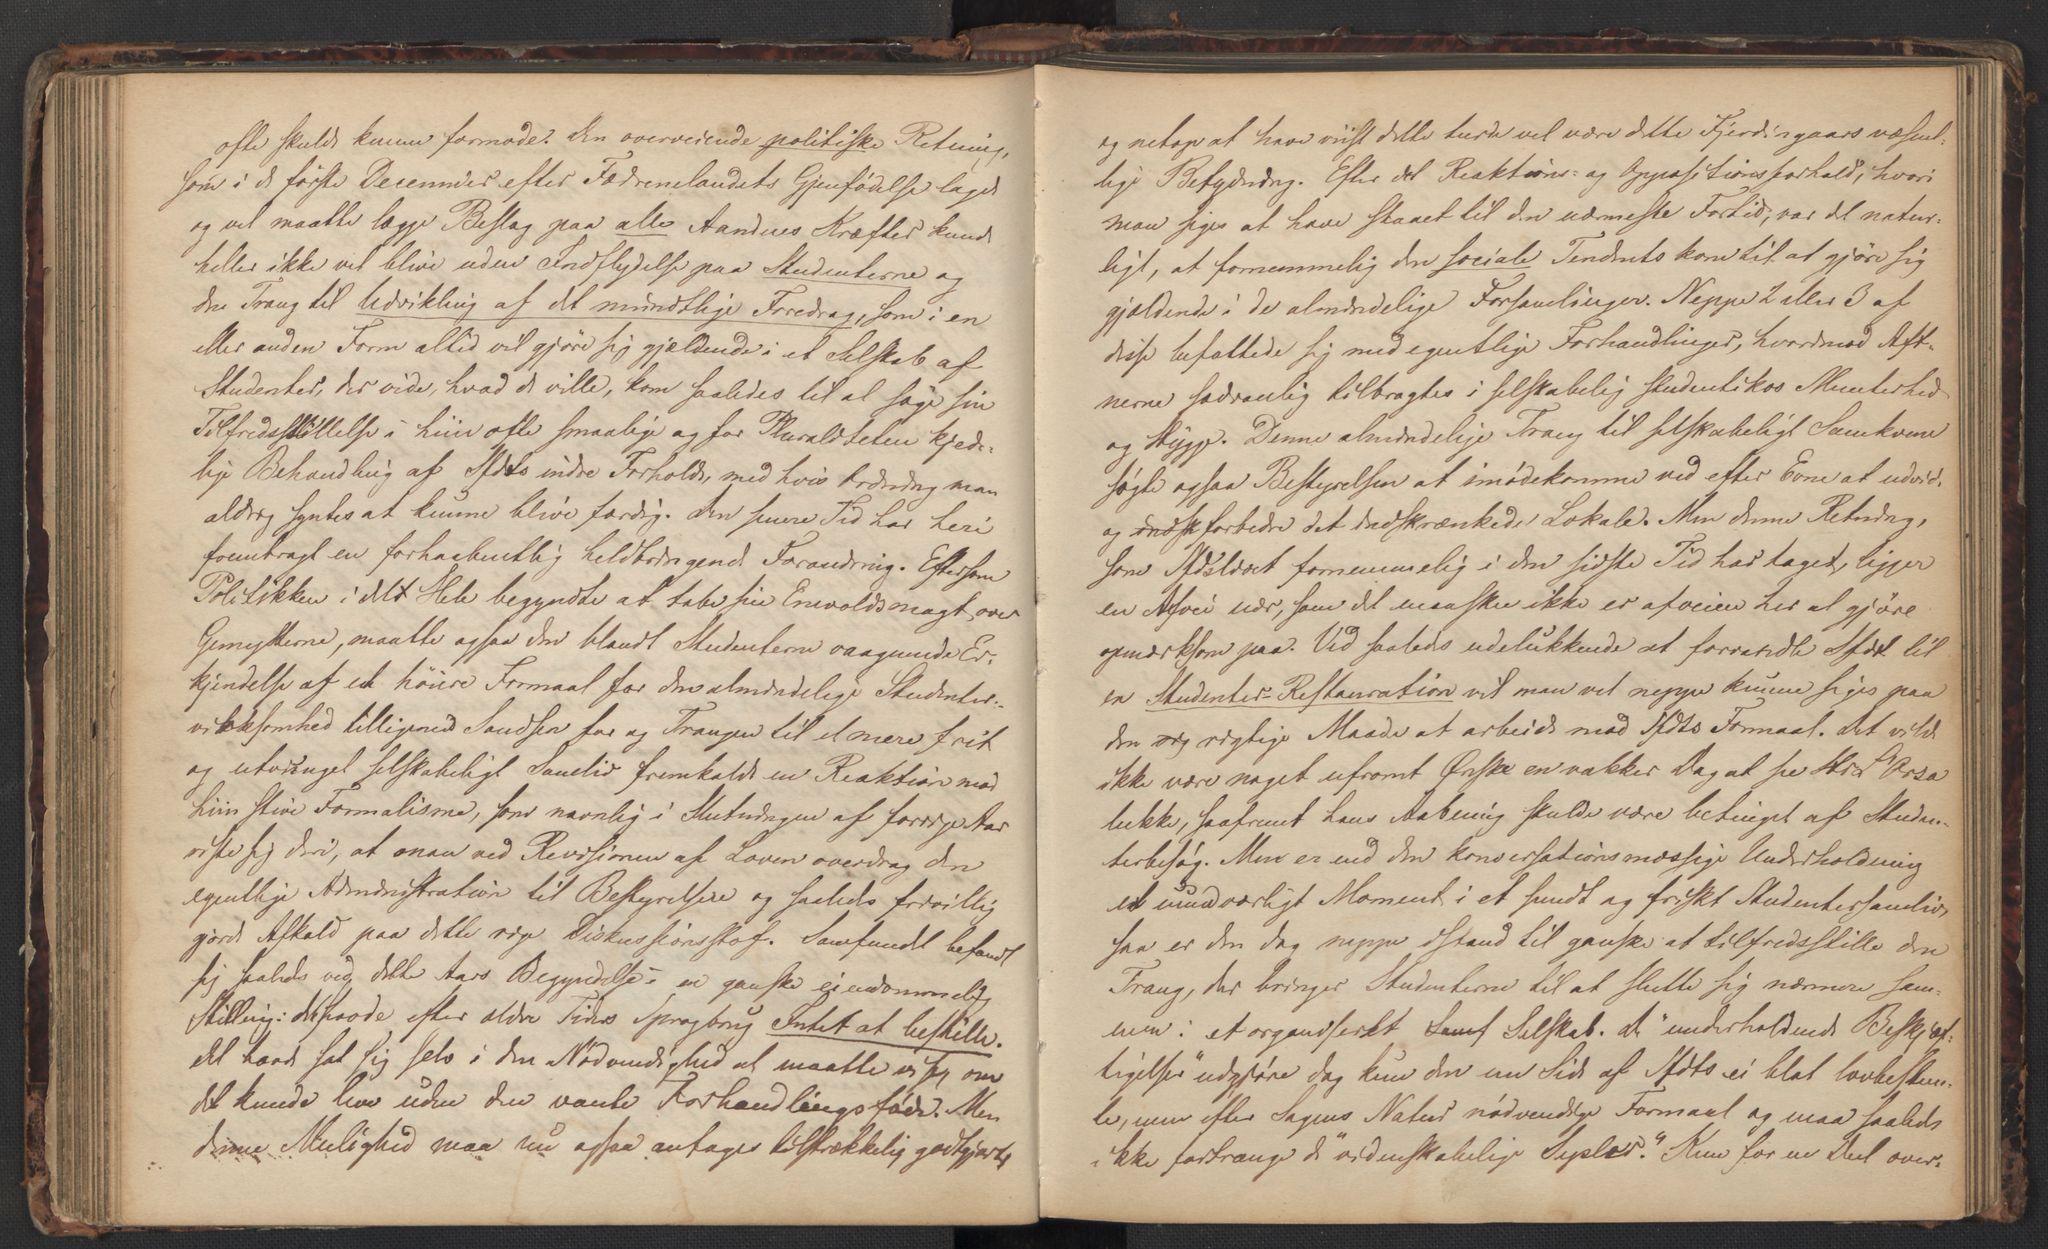 ofte skulde kunne formode. Den overveiende politiske Retning,
som i de første Decennier efter Fædrenelandets Gjenfødelse lagde
og vel maatte lægge Beslag paa alle Aandens Kræfter kunde
heller ikke vel blive uden Indflydelse paa Studenterne og
den Trang til Udvikling af det mundtlige Foredrag, som i en
eller anden Form altid vil gjøre sig gjældende i et Selskab af
Studenter, der vide, hvad de ville, kom saaledes til at søge sin
Tilfredsstillelse i hiin ofte smaalige og for Pluraliteten kjede-
lige Behandling af Sfdts indre Forholde, med hvis Ordning man
aldrig syntes at kunne blive færdig. Den senere Tid har heri
frembragt en forhaabentlig heldbringende Forandring. Eftersom
Politikken i det Hele begyndte at tabe sin Enevoldsmagt over
Gemytterne, maatte ogsaa den blandt Studenterne vaagnende Er-
kjendelse af et høiere Formaal for den almindelige Studenter-
virksomhed tilligemed Sandsen for og Trangen til et mere frit
og utvunget selskabeligt Samliv fremkalde en Reaktion mod
hiin stive Formalisme, som navnlig i Slutningen af forrige Aar
viste sig deri, at man ved Revisionen af Loven overdrog den
egentlige Administration til Bestyrelsen og saaledes frivillig
gjorde Afkald paa dette rige Diskussionsstof. Samfundet befandt
sig saaledes ved dette Aars Begyndelse i en ganske eiendommelig
Stilling: det havde efter ældre Tiders Sprogbrug Intet at bestille.
Det havde sat sig selv i den Nødvendighed at maatte vise, om
det kunde leve uden den vante Forhandlingsføde. Men
denne Mulighed maa nu ogsaa antages tilstrækkelig godtgjort,
og netop at have viist dette turde vel være dette Fjerdingaars væsent-
lige Betydning. Efter det Reaktions- og Oppositionsforhold, hvori
man siges at have staaet til den nærmeste Fortid, var det natur-
ligt, at fornemmelig den sociale Tendents kom til at gjøre sig
gjældende i de almindelige Forsamlinger. Neppe 2 eller 3 af
disse befattede sig med egentlige Forhandlinger, hvorimod Aft-
nerne sædvanlig tilbragtes i selskabelig studentikos Munterhed
og Hygge. Denne almindelige Trang til selskabeligt Samkvem
søgte ogsaa Bestyrelsen at imødekomme ved efter Evne at udvide
og forbedre det indskrænkede Lokale. Men denne Retning,
som Sfdslivet fornemmelig i den sidste Tid har taget, ligger
en Afvei nær, som det maaskee ikke er afveien her at gjøre
opmærksom paa. Ved saaledes udelukkende at forvandle Sfdet til
en Studenter-Restauration vil man vel neppe kunne siges paa
den rigtige Maade at arbeide mod Sfdts Formaal. Det vilde
ikke være noget ufromt Ønske en vakker Dag at se Hr Orsa
lukke, saafremt hans Aabning skulde være betinget af Studen-
terbesøg. Men er end den konversationsmæssige Underholdning
et uundværligt Moment i et sundt og friskt Studentersamliv,
saa er den dog neppe istand til ganske at tilfredsstille den
Trang, der bringer Studenterne til at slutte sig nærmere sam-
men i et organiseret Selskab. De "underholdende Beskjæf-
tigelser" udgjøre dog kun den ene Side af Sfdts ei blot lovbestem-
te, men efter Sagens Natur nødvendige Formaal og maa saaledes
ikke fortrænge de "videnskabelige Sysler." Kun for en Deel over-